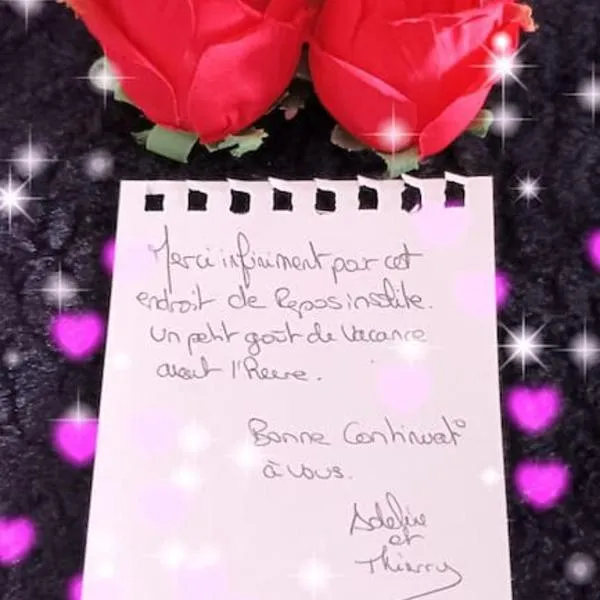 Merci infiniment pour cet
endroit de Repos insolite.
Un petit goût de Vacance
avant l'Heure.
Bonne Continuat°
à vous.
Adeline
et
Thierry